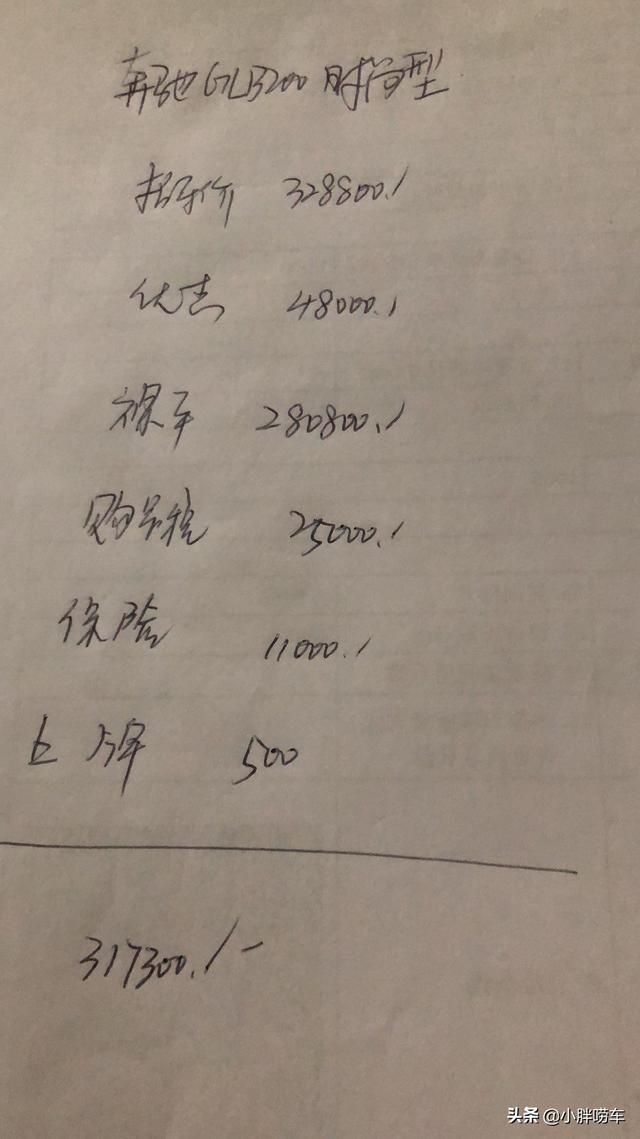 奔驰GLB200时尚型
指导价 328800./
优惠 48000./
裸车 280800./
购置税 25000./
保险 11000./
上牌 500
317300./-
头条 @小胖唠车